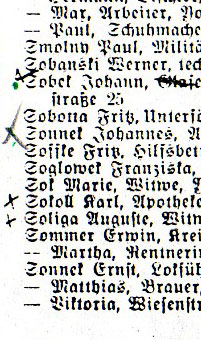 — Max, Arbeiter,
— Paul, Schuhmache
Smolny Paul, Militä
Sobanski Werner, tec
Sobek Johann,
straße 25
Sobotta Fritz, Untersü
Sonnek Johannes, A
Soffke Fritz, Hilfsbet
Soglowek Franziska,
Sok Marie, Witwe,
Sokoll Karl, Apotheke
Soliga Auguste, Witw
Sommer Erwin, Krei
-- Martha, Rentnerin
Sonnek Ernst, Lokfüh
— Matthias, Brauer,
— Viktoria, Wiesenstr